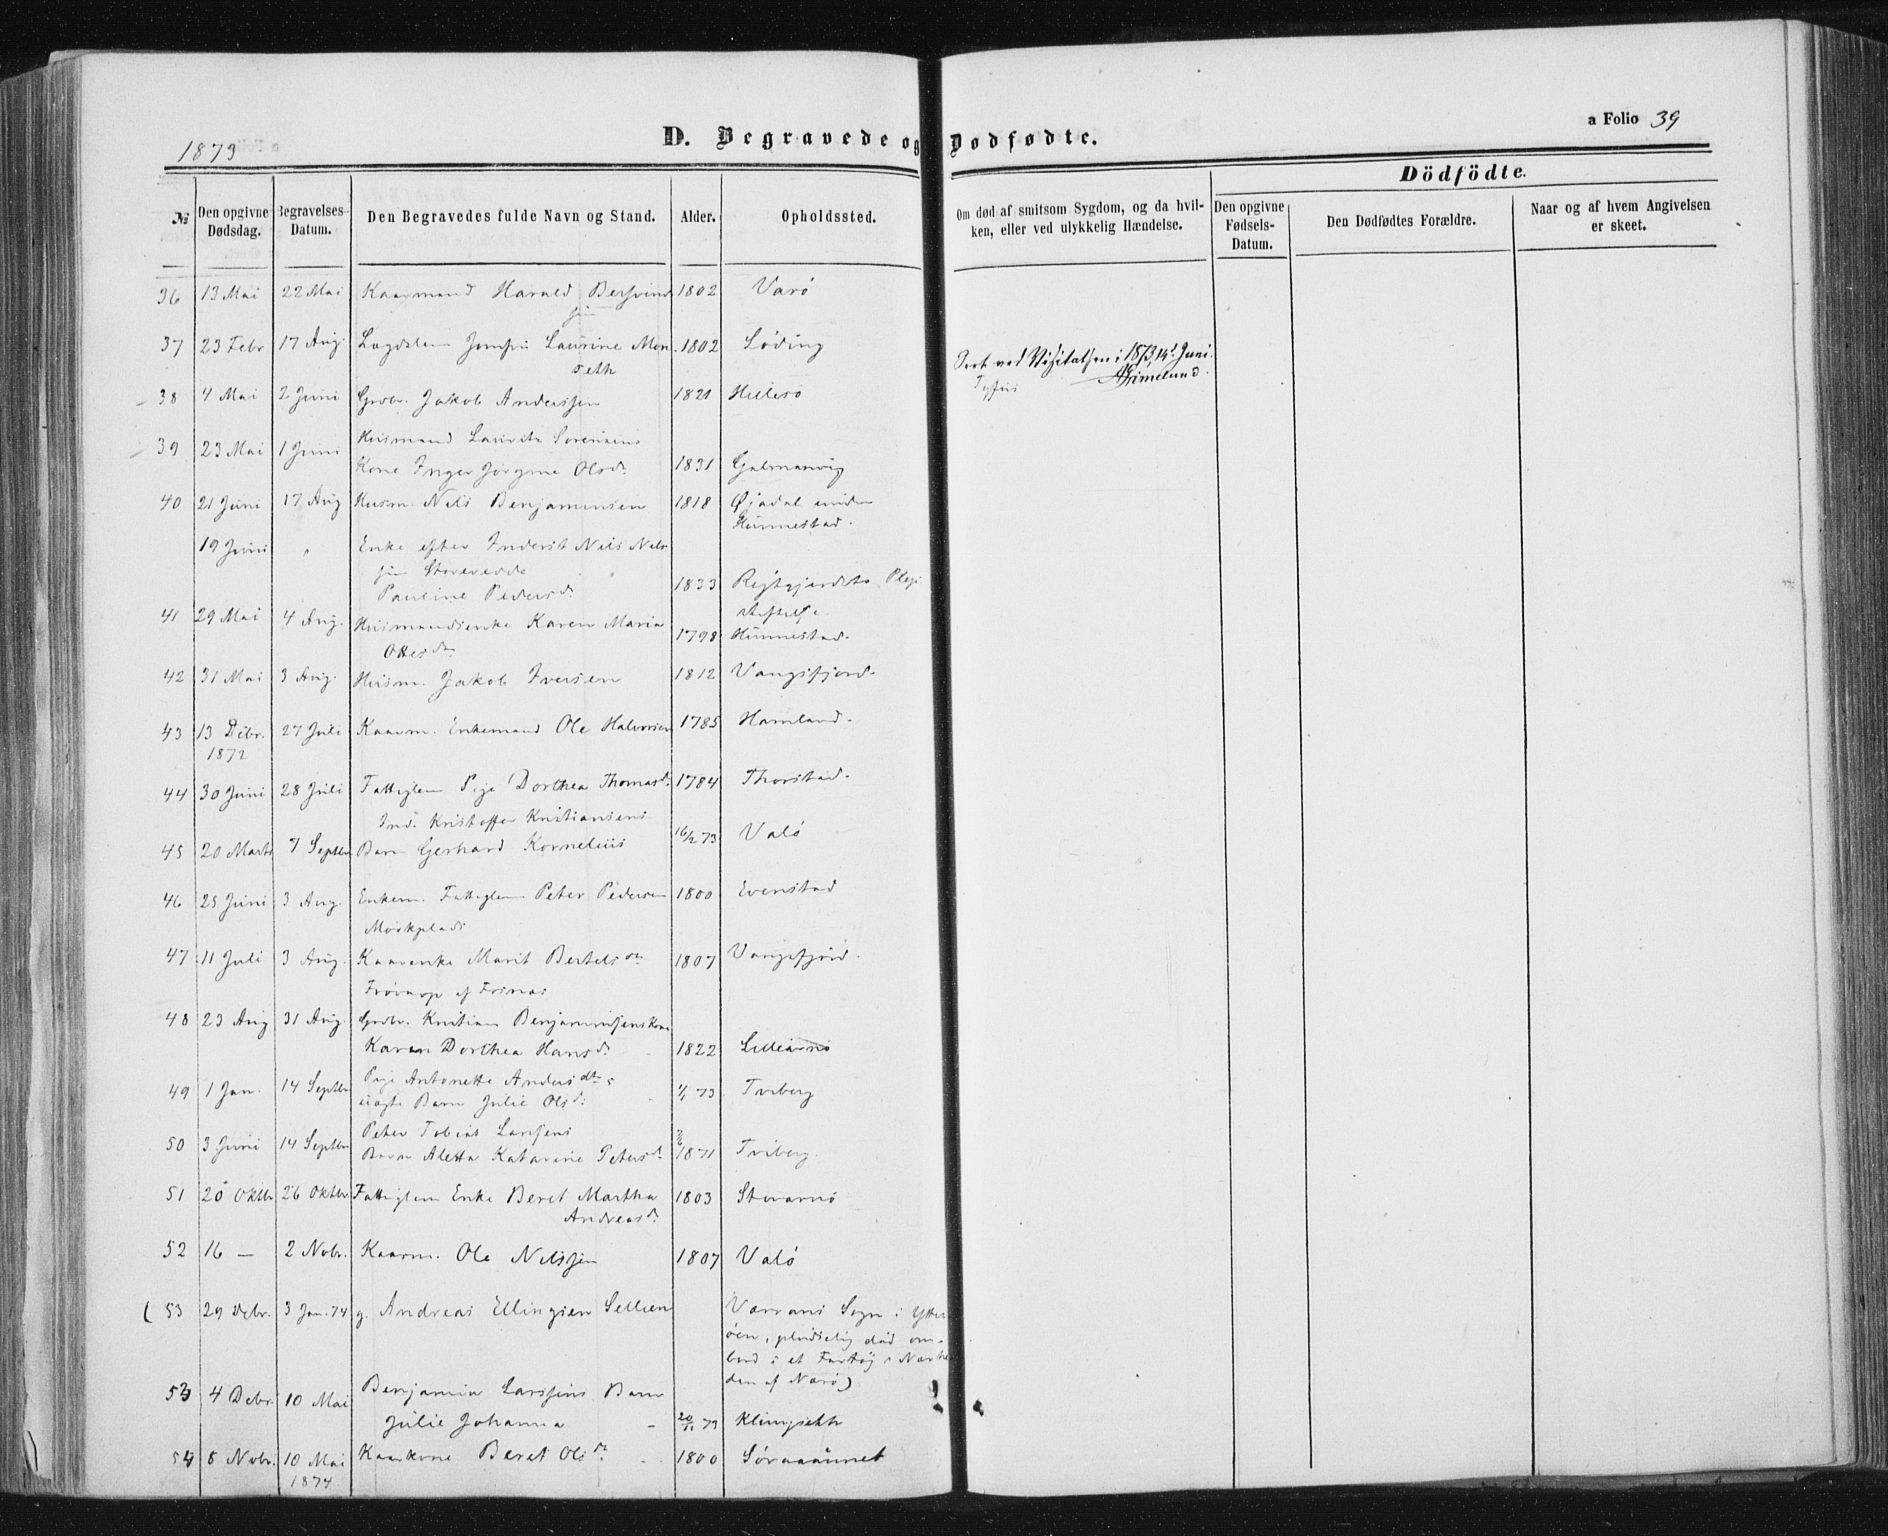 1873
D. Begravede og Dødfødte.
a Folio 39
Dödfödte.
№
Den opgivne Dødsdag.
Begravelses-Datum.
Den Begravedes fulde Navn og Stand.
Alder.
Opholdssted.
Om død af smitsom Sygdom, og da hvil-
ken, eller ved ulykkelig Hændelse.
Den opgivne Fødsels-Datum.
Den Dødfødtes Forældre.
Naar og af hvem Angivelsen
er skeet.
36 13 Mai 22 Mai Kaarmand Harald 1802 Varø
37 23 Febr 17 Aug. Lægdslem Jomfru Laurine Mon- 1802 Løding
seth
Seet ved Visitatsen i 1873, 14d Juni.
AGrimelund.
38 4 Mai 2 Juni Grdbr. Jakob Anderssen 1821 Hillesø
Tyfus
39 23 Mai 1 Juni Husmand Laurits Sørensens
Kone Inger Jørgine Olsdr. 1831
40 21 Juni 17 Aug Husm. Nels Benjaminsen 1818 Øjadal under
Hunnestad.
19 Juni " Enke efter Inderst Nils Nels-
sen
Pauline Pedersdr. 1833
stiftelse.
41 29 Mai 4 Aug. Husmandsenke Karen Maria
Ottesdr. 1798 Hunnestad.
42 31 Mai 3 Aug. Husm. Jakob Iversen 1812 Vangsfjord.
43 13 Debr. 27 Juli Kaarm. Enkemand Ole Halvorsen 1785 Hamland.
1872
44 30 Juni 28 Juli Fattiglem Pige Dorthea Thomasd. 1784 Thorstad.
Ind. Kristoffer Kristiansens
45 20 Marts 7 Septbr Barn Gerhard Kornelius 16/2 73 Valø
46 25 Juni 3 Aug. Enkem. Fattiglem Peter Pedersen 1800 Evenstad
Mørkplads
47 11 Juli 3 Aug. Kaarenke Marit Bertelsdtr 1807 Vangsfjord.
af Fosnæs
48 23 Aug 31 Aug. Grdbr. Kristian Benjaminsens Kone
Karen Dorthea Hansdr. 1822
49 1 Jan. 14 Septbr Pige Antonette Andersdtr s
uægte Barn Julie Olsd: 1/1 73 Tviberg
50 3 Juni 14 Septbr Peter Tobias Larsens
Barn Aletta Katarine Petersdr 1871 Tviberg.
51 20 Oktbr 26 Oktbr. Fattiglem Enke Beret Martha 1803
Andreasdr.
52 16 — 2 Nobr. Kaarm. Ole Nilssen 1807 Valø
( 53 29 Debr. 3 Jan. 74 g. Andreas Ellingsen Sellien Værrans Sogn i Ytter-
øen, pludselig død om-
bord i et Fartøj i Nærhe-
den af Nærø)
53 4 Debr. 10 Mai Benjamin Larssens Barn
Julie Johanna 20/11 73
54 8 Nobr. 10 Mai Kaarkone Beret Olsdr 1800
1874